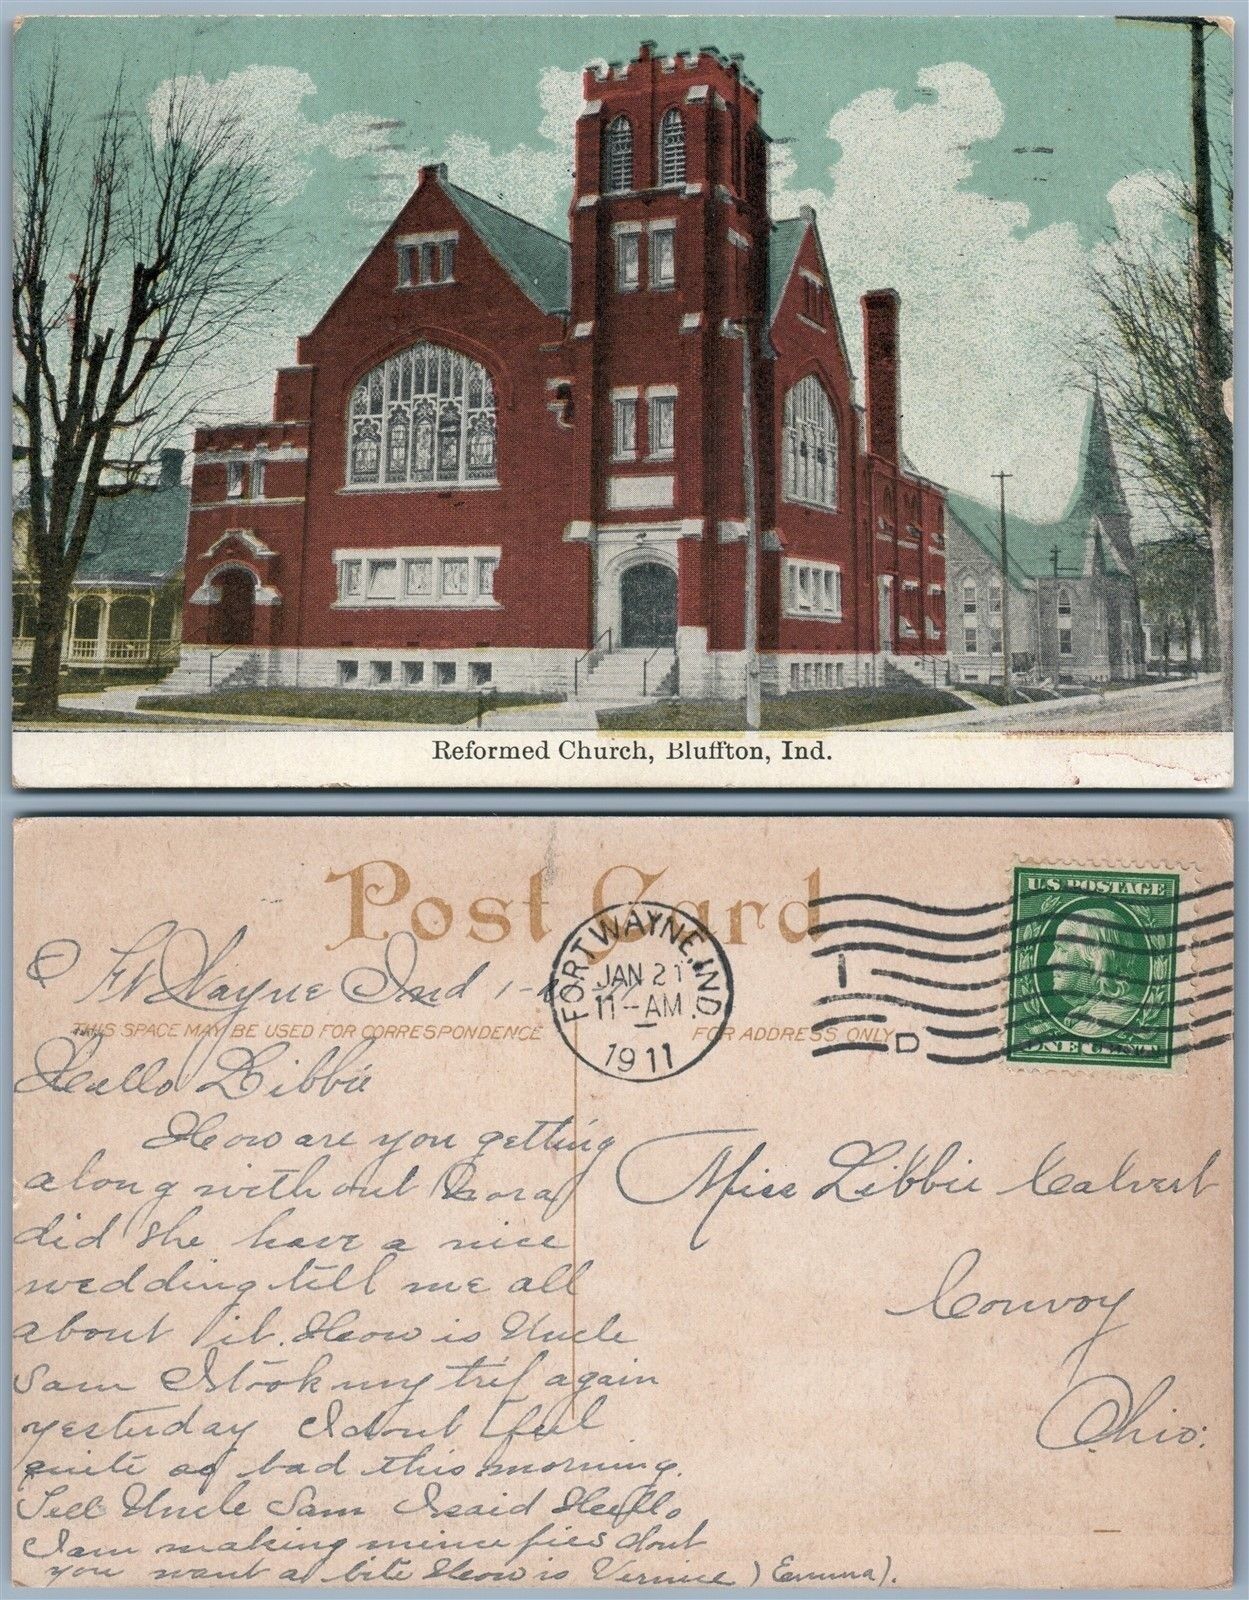 Reformed Church, Bluffton, Ind.
Post Card
U.S. POSTAGE
ONE CENT
FORT WAYNE, IND.
JAN 21
11-AM
1911
D
THIS SPACE MAY BE USED FOR CORRESPONDENCE
FOR ADDRESS ONLY
Ft Wayne Ind
Hello Libbie
How are you getting
along without Nora
did she have a nice
wedding tell me all
about it. How is Uncle
Sam I took my trip again
yesterday I dont feel
quite as bad this morning.
Tell Uncle Sam I said Hello
I am making mince pies dont
you want a bite How is Vernice ) Emma).
Miss Libbie Calvert
Convoy
Ohio.